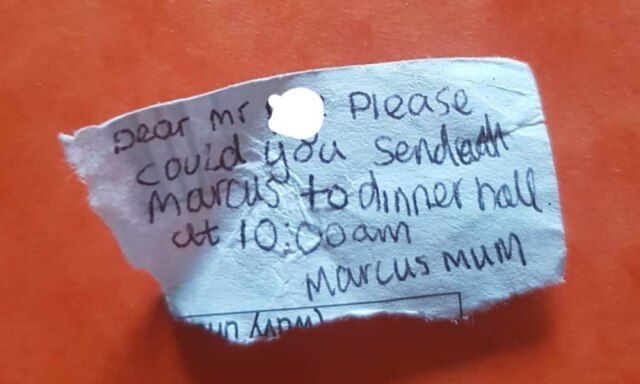 Dear mr Please
could you send
marcus to dinner hall.
at 10:00am
marcus mum